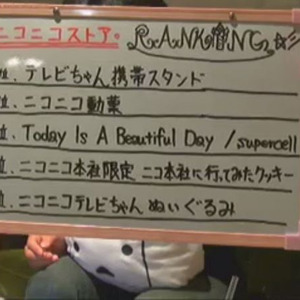 ニコニコストア。RANKING☆彡
位、テレビちゃん携帯スタンド
位、ニコニコ動菓
位、Today Is A Beautiful Day / supercell
位、ニコニコ本社限定 ニコ本社に行ってみたクッキー
、ニコニコテレビちゃん ぬいぐるみ